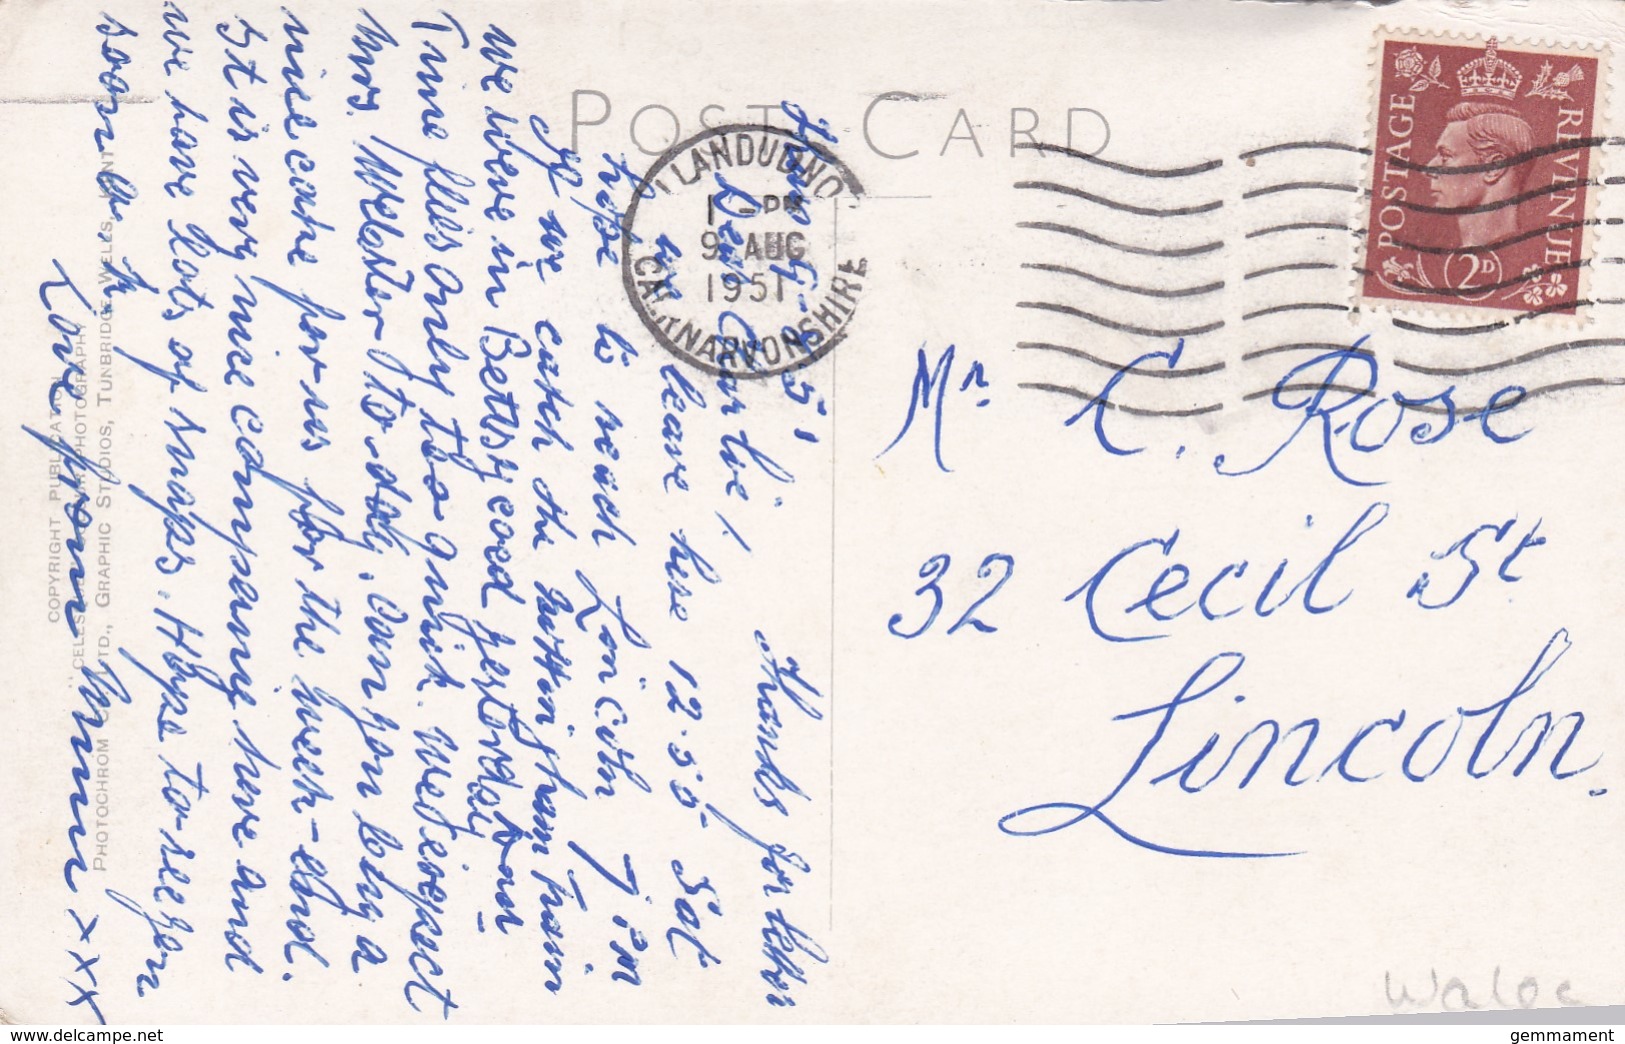 POST CARD
LLANDUDNO
1 - PM
9 AUG
1951
CAERNARVONSHIRE
POSTAGE
REVENUE
2D
Thurs 9.8.51
Dear Charlie! Thanks for letter
we leave here 12.55 Sat
hope to reach Lincoln 7 P.M
If we catch the Nottingham Train
we were in Bettsycoed yesterday and
Time flies only to quick. We expect
Mrs. Webster to-day. Can you buy a
nice cake for us for the week-end.
It is very nice company here and
we have lots of snaps. Hope to see you
soon
Love from Mum xxx
Mr C. Rose
32 Cecil St
Lincoln.
COPYRIGHT PUBLICATION
PHOTOCHROM CO., LTD., GRAPHIC STUDIOS, TUNBRIDGE WELLS, KENT
Wales
gemmament